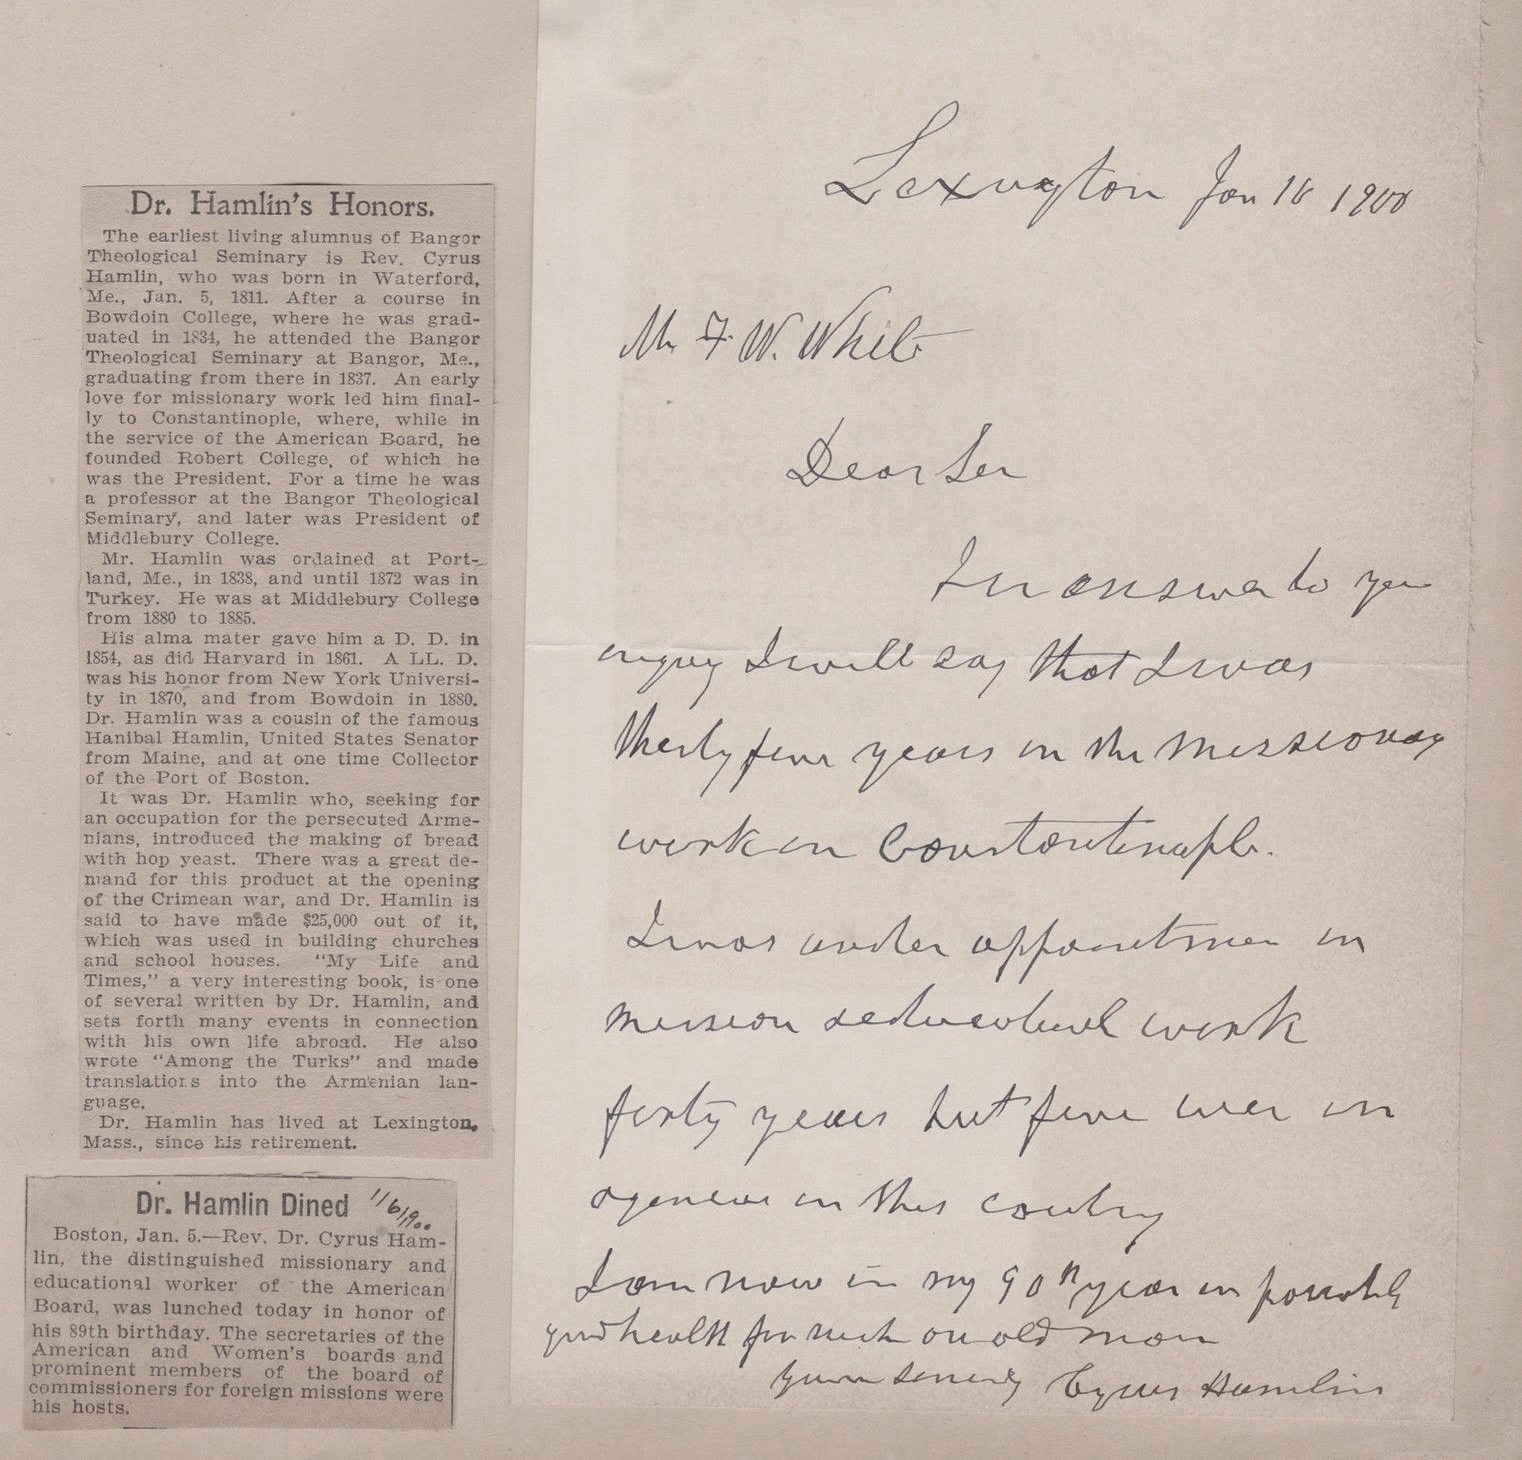 Dr. Hamlin's Honors.
The earliest living alumnus of Bangor
Theological Seminary is Rev. Cyrus
Hamlin, who was born in Waterford,
Me., Jan. 5, 1811. After a course in
Bowdoin College, where he was grad-
uated in 1834, he attended the Bangor
Theological Seminary at Bangor, Me.,
graduating from there in 1837. An early
love for missionary work led him final-
ly to Constantinople, where, while in
the service of the American Board, he
founded Robert College, of which he
was the President. For a time he was
a professor at the Bangor Theological
Seminary, and later was President of
Middlebury College.
Mr. Hamlin was ordained at Port-
land, Me., in 1838, and until 1872 was in
Turkey. He was at Middlebury College
from 1880 to 1885.
His alma mater gave him a D. D. in
1854, as did Harvard in 1861. A LL. D.
was his honor from New York Universi-
ty in 1870, and from Bowdoin in 1880.
Dr. Hamlin was a cousin of the famous
Hanibal Hamlin, United States Senator
from Maine, and at one time Collector
of the Port of Boston.
It was Dr. Hamlin who, seeking for
an occupation for the persecuted Arme-
nians, introduced the making of bread
with hop yeast. There was a great de-
mand for this product at the opening
of the Crimean war, and Dr. Hamlin is
said to have made $25,000 out of it,
which was used in building churches
and school houses. "My Life and
Times," a very interesting book, is one
of several written by Dr. Hamlin, and
sets forth many events in connection
with his own life abroad. He also
wrote "Among the Turks" and made
translations into the Armenian lan-
guage.
Dr. Hamlin has lived at Lexington,
Mass., since his retirement.
Dr. Hamlin Dined 1/6/1900
Boston, Jan. 5.—Rev. Dr. Cyrus Ham-
lin, the distinguished missionary and
educational worker of the American
Board, was lunched today in honor of
his 89th birthday. The secretaries of the
American and Women's boards and
prominent members of the board of
commissioners for foreign missions were
his hosts.
Lexington Jan 1900
Mr F. W. White
Dear Sir
In answer to your
enquiry I will say that I was
thirty five years in the missionary
work in Constantinople.
I was under appointment in
mission educational work
forty years but five were in
agencies in this country
I am now in my 90th year in possibly
good health for such an old man
Yours sincerely Cyrus Hamlin